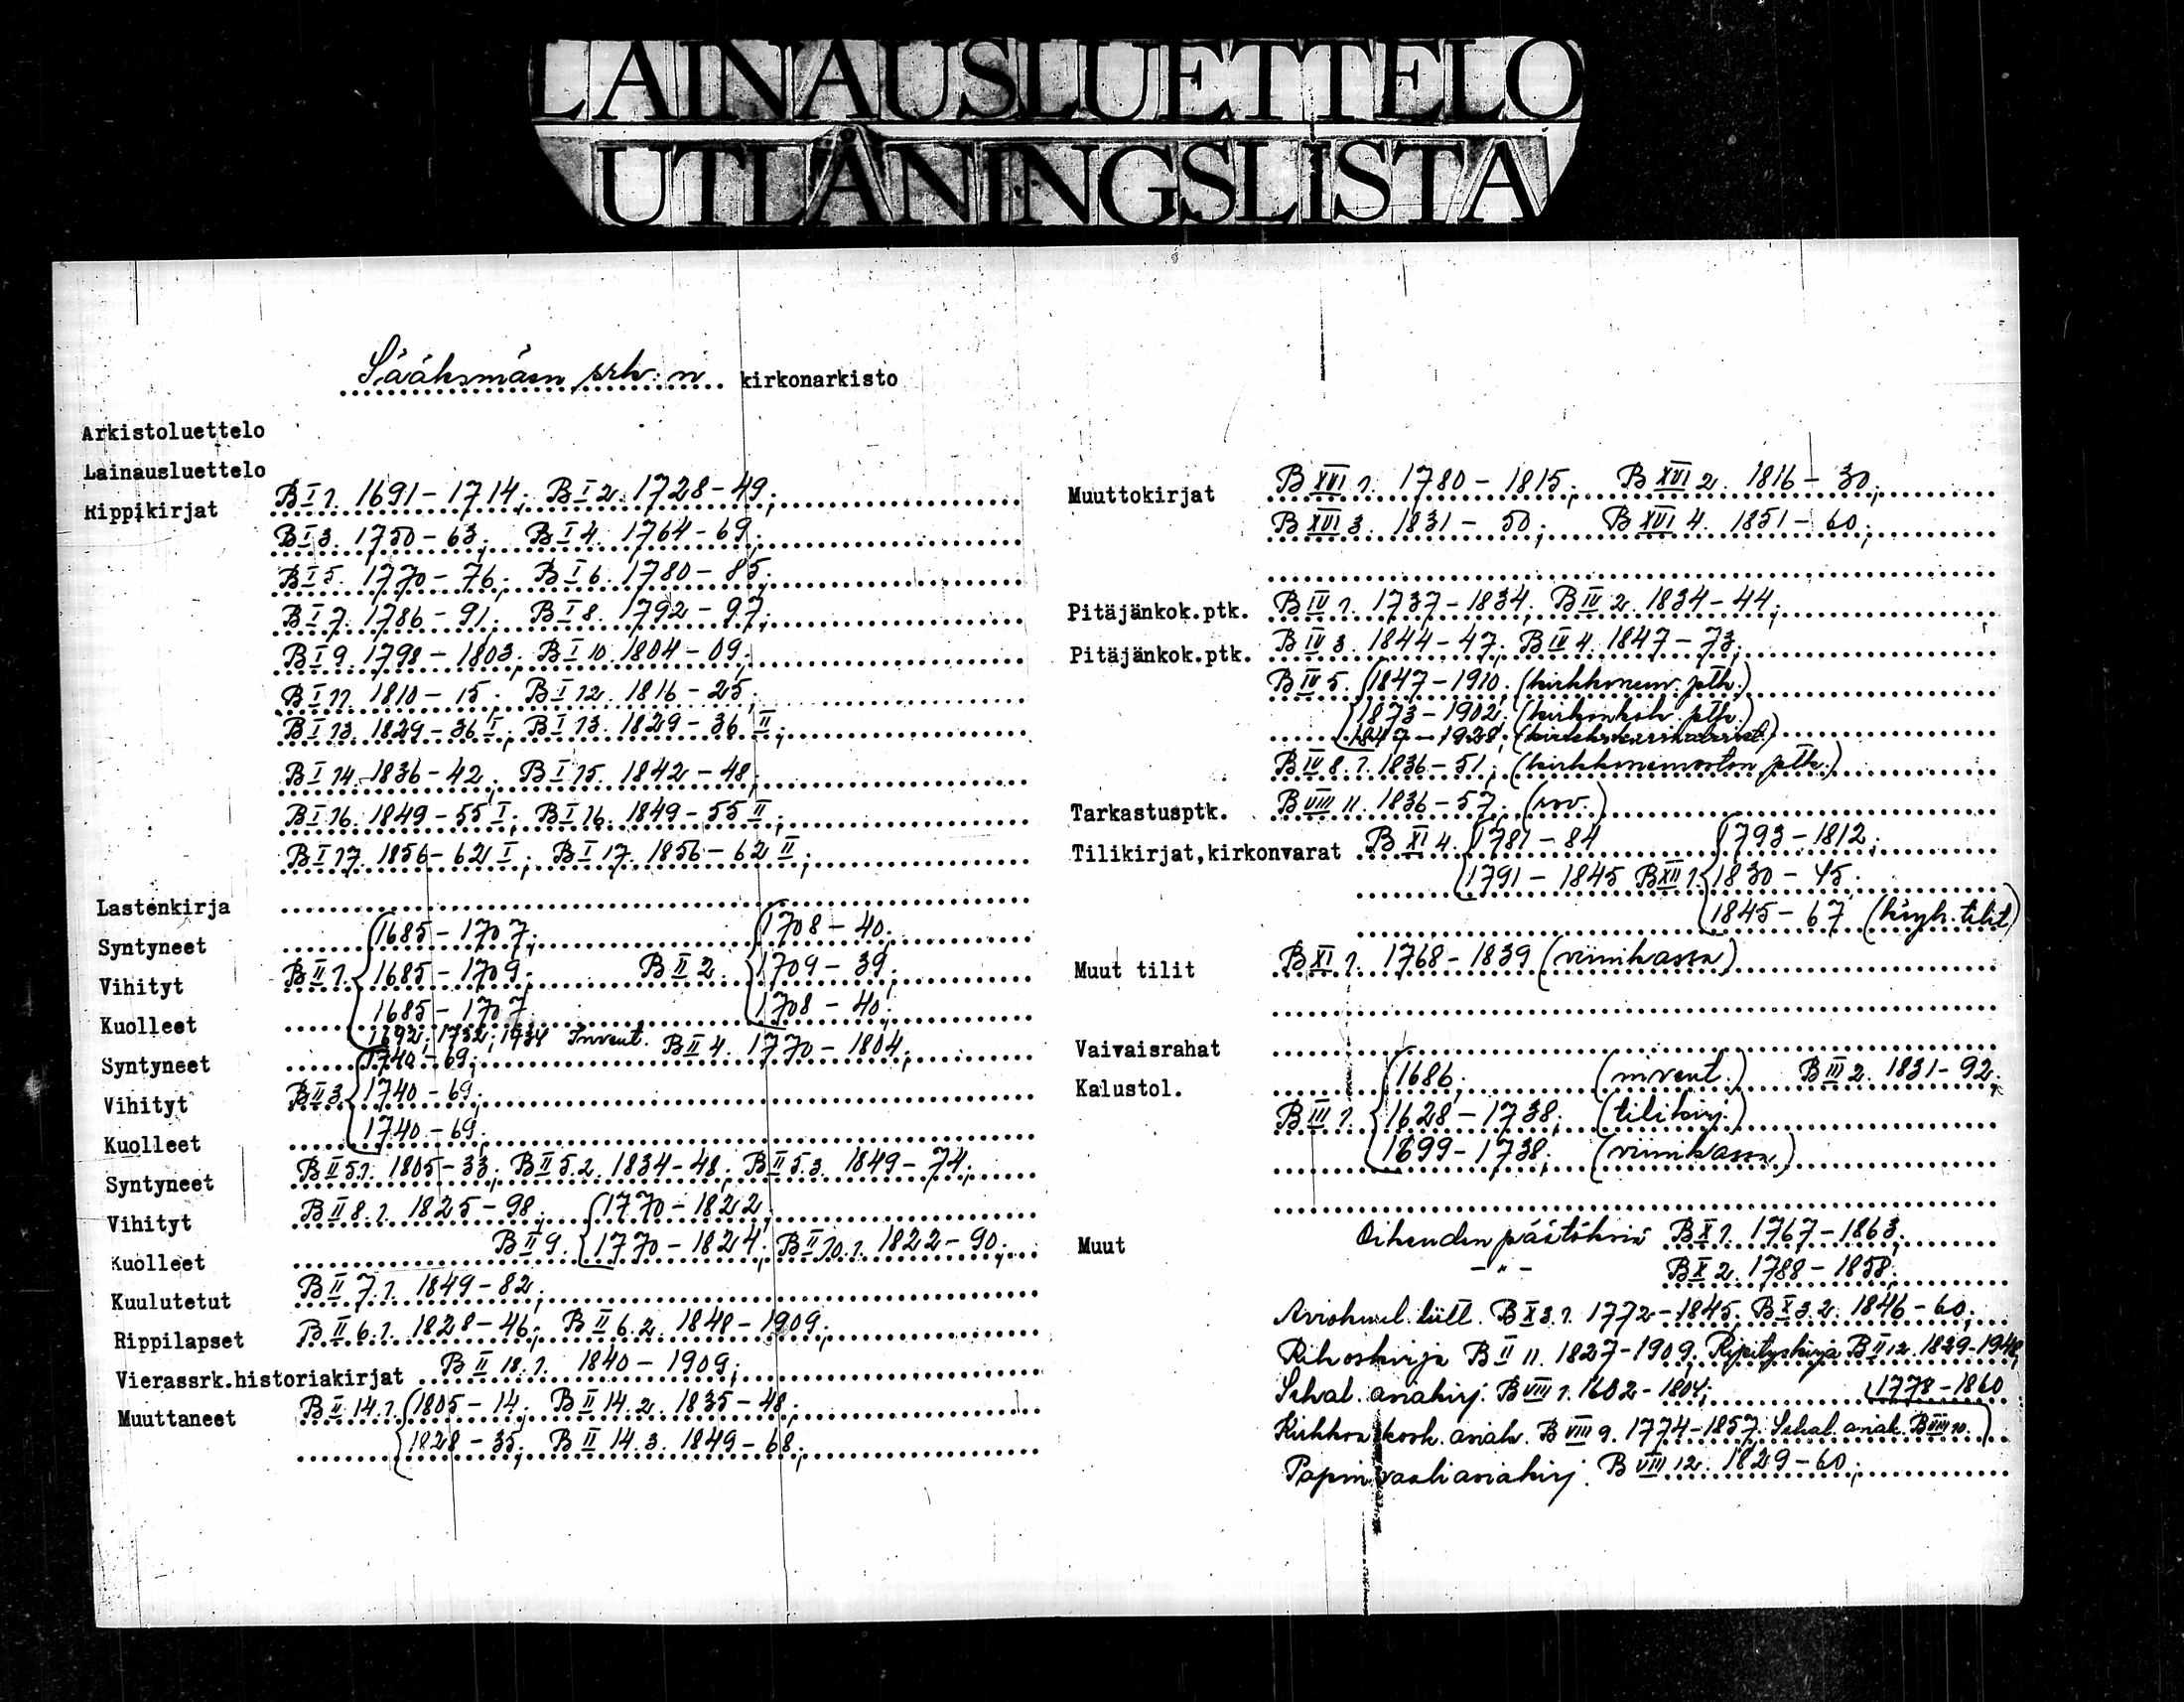 LAINAUSLUETTELO
UTLÅNINGSLISTA
Sääksmäen srk:n kirkonarkisto
Arkistoluettelo
Lainausluettelo
Rippikirjat B I 1. 1691-1714; B I 2. 1728-49;
B I 3. 1750-63; B I 4. 1764-69;
B I 5. 1770-76; B I 6. 1780-85;
B I 7. 1786-91; B I 8. 1792-97;
B I 9. 1798-1803; B I 10. 1804-09;
B I 11. 1810-15; B I 12. 1816-25;
B I 13. 1829-36 I; B I 13. 1829-36 II;
B I 14. 1836-42; B I 15. 1842-48;
B I 16. 1849-55 I; B I 16. 1849-55 II;
B I 17. 1856-62 I; B I 17. 1856-62 II;
Lastenkirja
Syntyneet 1685-1707; 1708-40;
Vihityt B II 1. 1685-1709; B II 2. 1709-39;
Kuolleet 1685-1707 1708-40;
1692; 1732; 1734 Invent. B II 4. 1770-1804;
Syntyneet 1740-69;
Vihityt B II 3. 1740-69;
Kuolleet 1740-69;
Syntyneet B II 5.1. 1805-33; B II 5.2. 1834-48; B II 5.3. 1849-74;
Vihityt B II 8.1. 1825-98; 1770-1822;
Kuolleet B II 9. 1770-1824; B II 10.1. 1822-90;
Kuulutetut B II 7.1. 1849-82;
Rippilapset B II 6.1. 1828-46; B II 6.2. 1848-1909;
Vierassrk.historiakirjat B II 18.1. 1840-1909;
Muuttaneet B II 14.1. 1805-14; B II 14.2. 1835-48;
1828-35; B II 14.3. 1849-68;
Muuttokirjat B XVI 1. 1780-1815; B XVI 2. 1816-30;
B XVI 3. 1831-50; B XVI 4. 1851-60;
Pitäjänkok.ptk. B IV 1. 1737-1834; B IV 2. 1834-44;
Pitäjänkok.ptk. B IV 3. 1844-47; B IV 4. 1847-73;
B IV 5. 1847-1910; (kirkkoneuv. ptk.)
1873-1902; (kirkonkok. ptk.)
1847-1928;
B IV 8.1. 1836-51; (kirkkoneuvoston ptk.)
Tarkastusptk. B VIII 11. 1836-57; (rov.)
Tilikirjat,kirkonvarat B XI 4. 1781-84 1793-1812;
1791-1845 B XII 1. 1830-45;
1845-67 (köyh. tilit)
Muut tilit B XI 1. 1768-1839 (viinikassa)
Vaivaisrahat
Kalustol. 1686; (invent.) B III 2. 1831-92;
B III 1. 1628-1738; (tilikirj.)
1699-1738; (viinikassa)
Muut Oikeuden päätöksiä B X 1. 1767-1863;
-"- B X 2. 1788-1858;
B X 3.1. 1772-1845; B X 3.2. 1846-60;
Rikoskirja B II 11. 1827-1909; Ripityskirja B II 12. 1829-1948;
Sekal. asiakirj. B VIII 1. 1602-1804; 1778-1860
Kirkkoa kosk. asiak. B VIII 9. 1774-1857; Sekal. asiak. B VIII 10.
Papinvaaliasiakirj. B VIII 12. 1829-60;